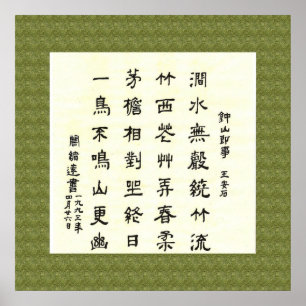 鍾山即事 王安石
澗水無聲繞竹流
竹西花艸弄春柔
茅檐相對坐終日
一鳥不鳴山更幽
紹達書
一九九三年
四月廿六日